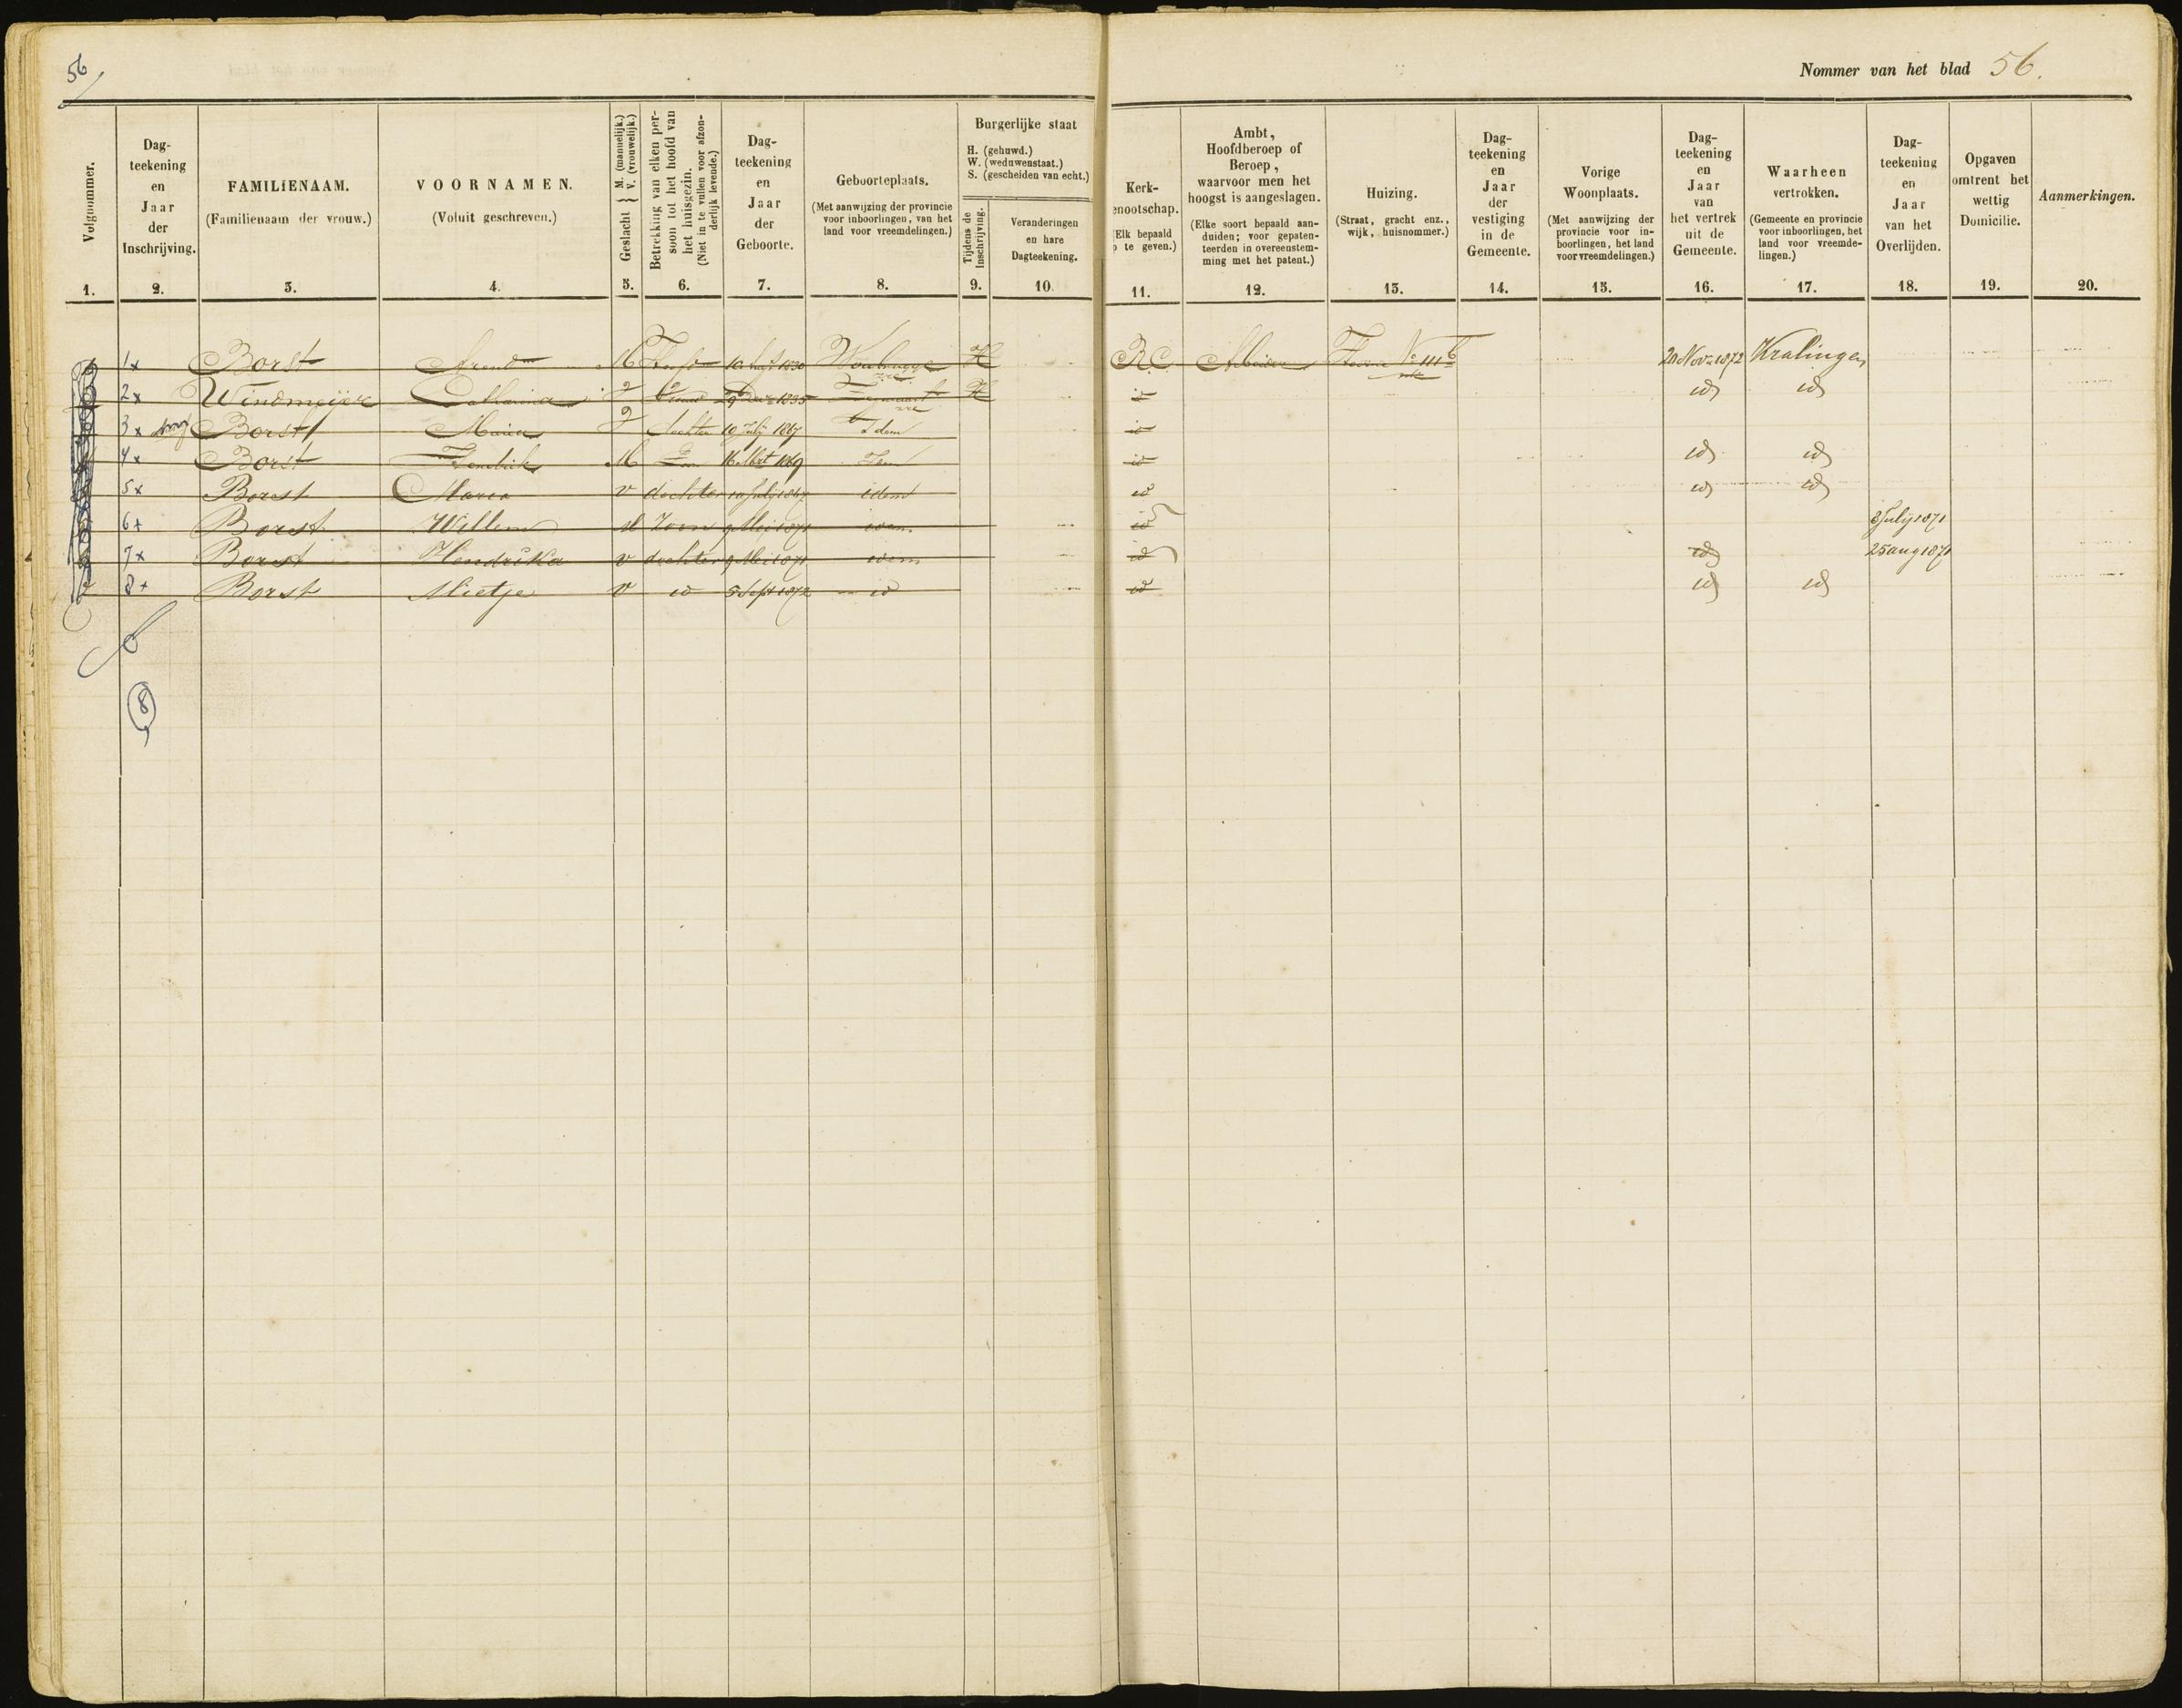 56
Nommer van het blad 56.
Volgnommer.
1.
Dag-
teekening
en
Jaar
der
Inschrijving.
2.
FAMILIENAAM.
(Familienaam der vrouw.)
3.
VOORNAMEN.
(Voluit geschreven.)
4.
Geslacht { M. (mannelijk.)
V. (vrouwelijk.)
5.
Betrekking van elken per-
soon tot het hoofd van
het huisgezin.
(Niet in te vullen voor afzon-
derlijk levende.)
6.
Dag-
teekening
en
Jaar
der
Geboorte.
7.
Geboorteplaats.
(Met aanwijzing der provincie
voor inboorlingen, van het
land voor vreemdelingen.)
8.
Burgerlijke staat
H. (gehuwd.)
W. (weduwenstaat.)
S. (gescheiden van echt.)
Tijdens de
Inschrijving.
9.
Veranderingen
en hare
Dagteekening.
10.
Kerk-
enootschap.
Elk bepaald
te geven.)
11.
Ambt,
Hoofdberoep of
Beroep,
waarvoor men het
hoogst is aangeslagen.
(Elke soort bepaald aan-
duiden; voor gepaten-
teerden in overeenstem-
ming met het patent.)
12.
Huizing.
(Straat, gracht enz.,
wijk, huisnommer.)
13.
Dag-
teekening
en
Jaar
der
vestiging
in de
Gemeente.
14.
Vorige
Woonplaats.
(Met aanwijzing der
provincie voor in-
boorlingen, het land
voor vreemdelingen.)
15.
Dag-
teekening
en
Jaar
van
het vertrek
uit de
Gemeente.
16.
Waarheen
vertrokken.
(Gemeente en provincie
voor inboorlingen, het
land voor vreemde-
lingen.)
17.
Dag-
teekening
en
Jaar
van het
Overlijden.
18.
Opgaven
omtrent het
wettig
Domicilie.
19.
Aanmerkingen.
20.
1x Borst Arend M Hoofd 1830 Woubrugge H RC Arbeider No 111b 20 Nov 1872 Kralingen
2x Windmeijer Catharina V Vrouw 29 Dec 1835 H id id id
3x Borst Maria V dochter 10 Julij 1867 Idem id
4x Borst Hendrik M Zoon 16 Mrt 1869 Idem id id id
5x Borst Maria v dochter 10 July 1867 idem id id id
6x Borst Willem M Zoon 9 Mei 1871 idem id 8 July 1871
7x Borst Hendrika v dochter 9 Mei 1871 idem id id 25 aug 1871
8x Borst Mietje v id 5 Sept 1872 id id id id
8